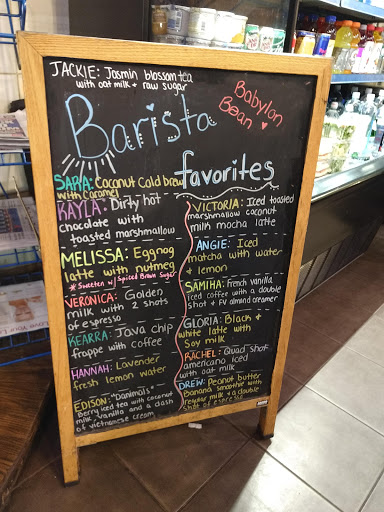 JACKIE: Jasmin blossom tea
with oat milk + raw sugar
Babylon
Bean
Barista
favorites
SARA: Coconut Cold brew
with Caramel
KAYLA: Dirty hot
chocolate with
toasted marshmallow
MELISSA: Eggnog
latte with nutmeg
* Sweeten w/ Spiced Brown Sugar
VERONICA: Golden
milk with 2 shots
of espresso
KEARRA: Java chip
frappe with coffee
HANNAH: Lavender
fresh lemon water
EDISON: "Danimals"
Berry iced tea with coconut
milk, vanilla and a dash
of vietnamese cream
VICTORIA: Iced toasted
marshmallow coconut
milk mocha latte
ANGIE: Iced
matcha with water
& lemon
SAMIHA: French vanilla
iced coffee with a double
shot + FV almond creamer
GLORIA: Black &
white latte with
Soy milk
RACHEL: Quad shot
americano iced
with oat milk
DREW: Peanut butter
Banana smoothie with
regular milk + a double
shot of espresso